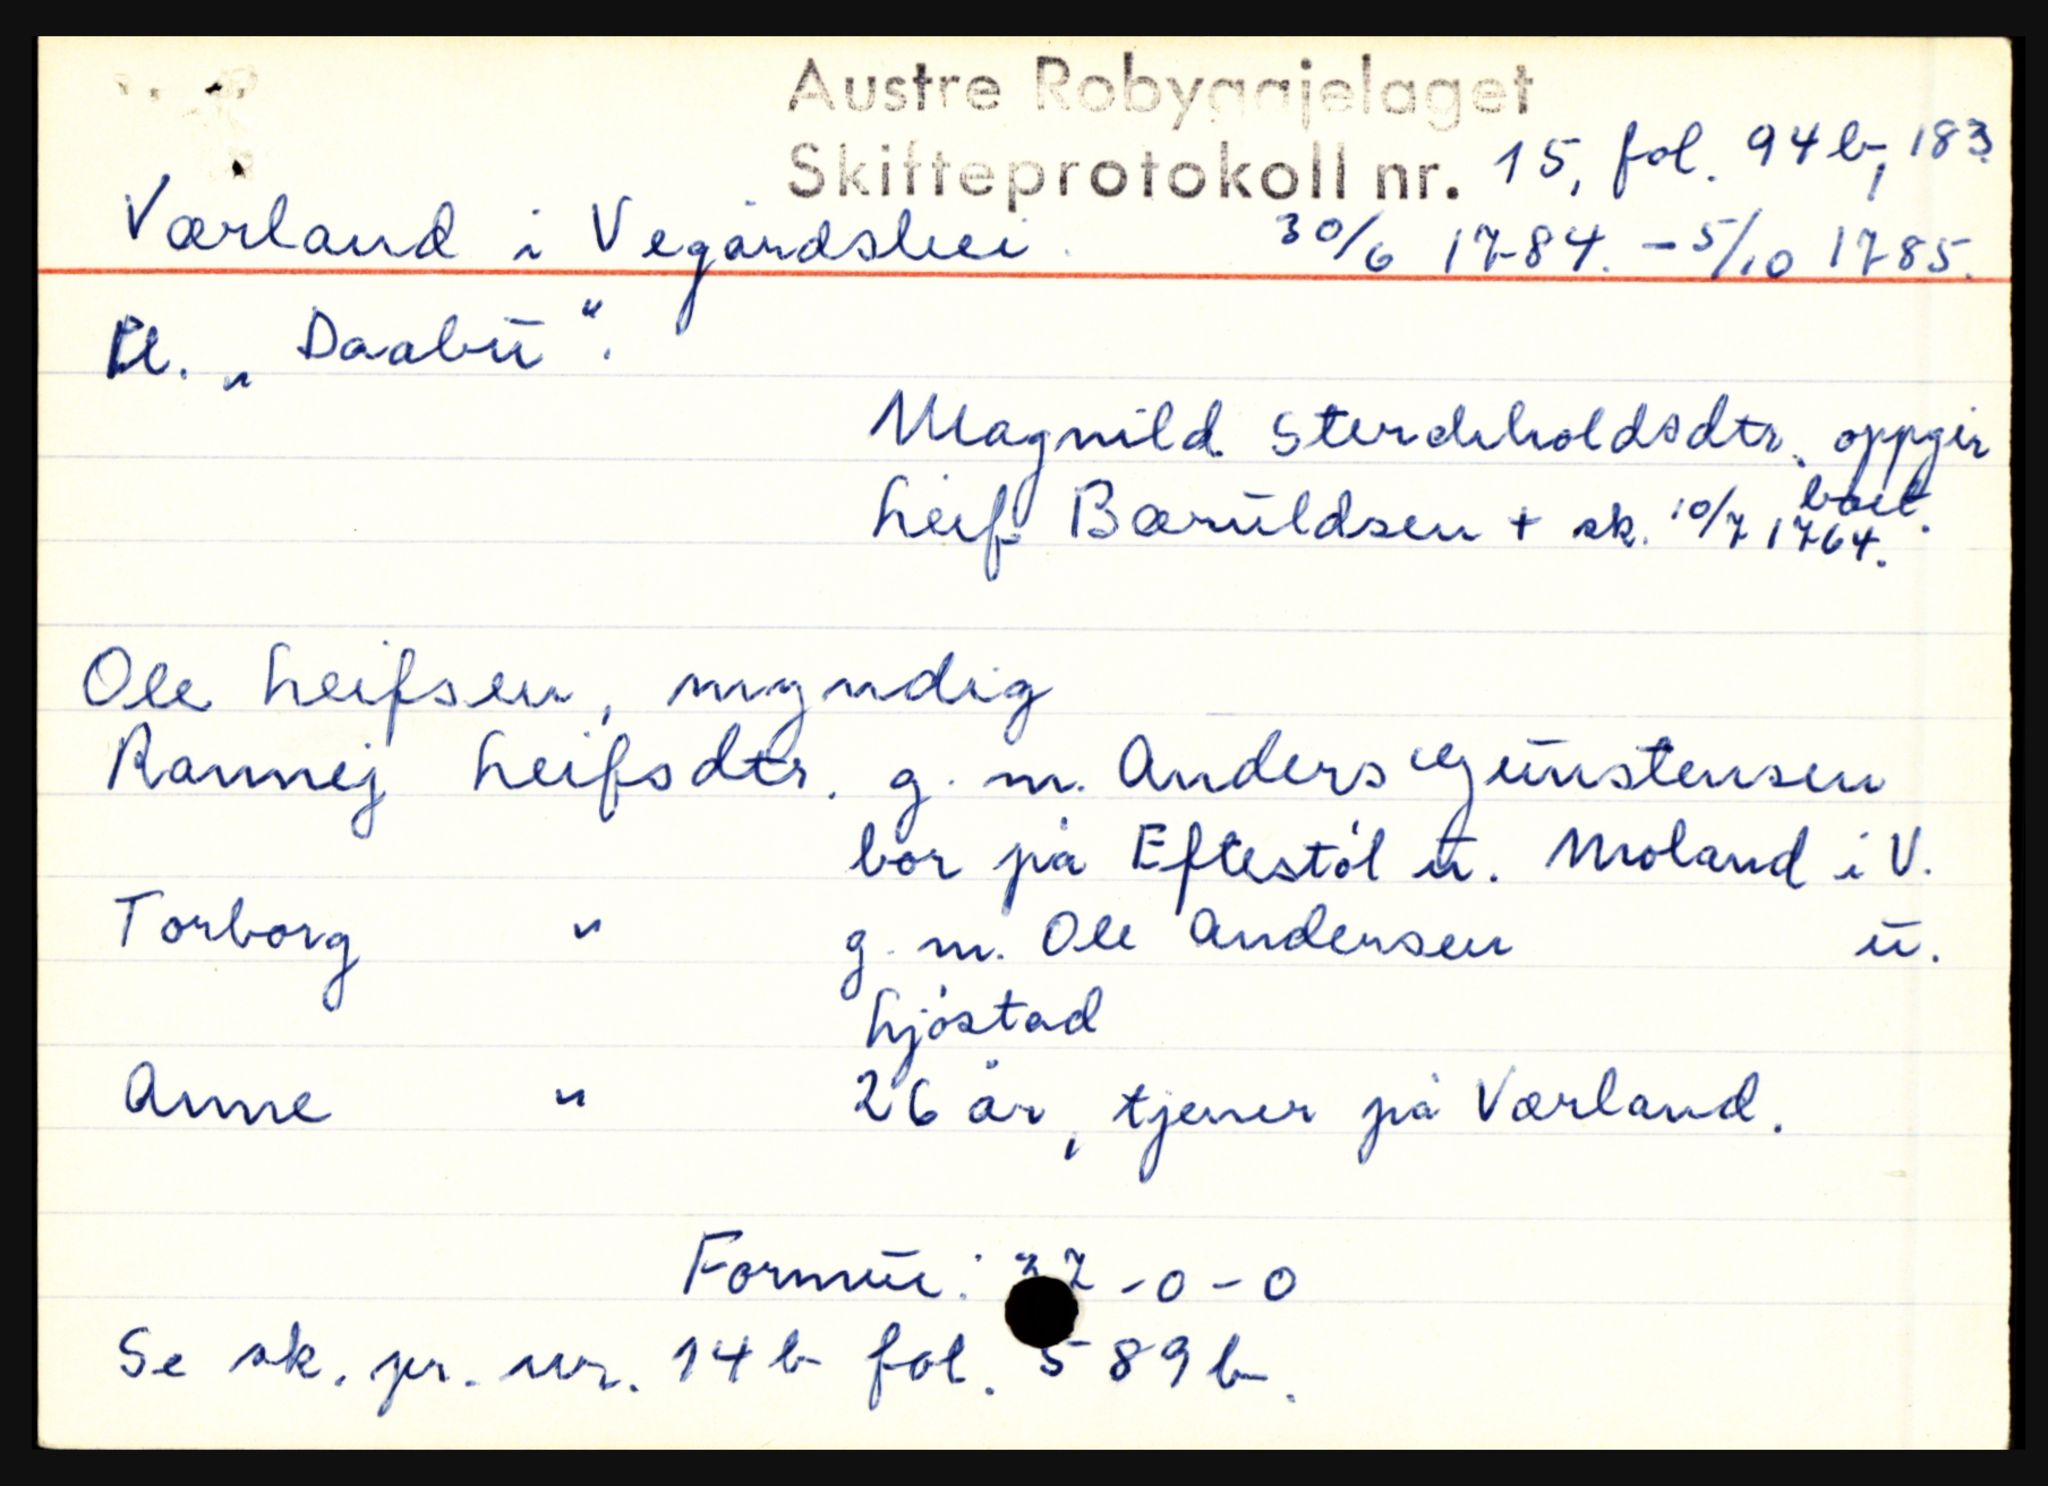 Austre Robyggjelaget
Skifteprotokoll nr. 15, fol. 94b, 183.
Værland i Vegårdshei. 30/6 1784. – 5/10 1785.
Pl. „Daabu“.
Magnild Sterchholdsdtr. oppgir boet.
Leif Bæruldsen + sk. 10/7 1764.
Ole Leifsen, myndig
Rannej Leifsdtr. g. m. Anders Gunstensen
bor på Eftestøl u. Moland i V.
Torborg " g. m. Ole Andersen u.
Ljøstad
Anne " 26 år, tjener på Værland.
Formue: 37-0-0
Se sk. pr. nr. 14b fol. 589b.